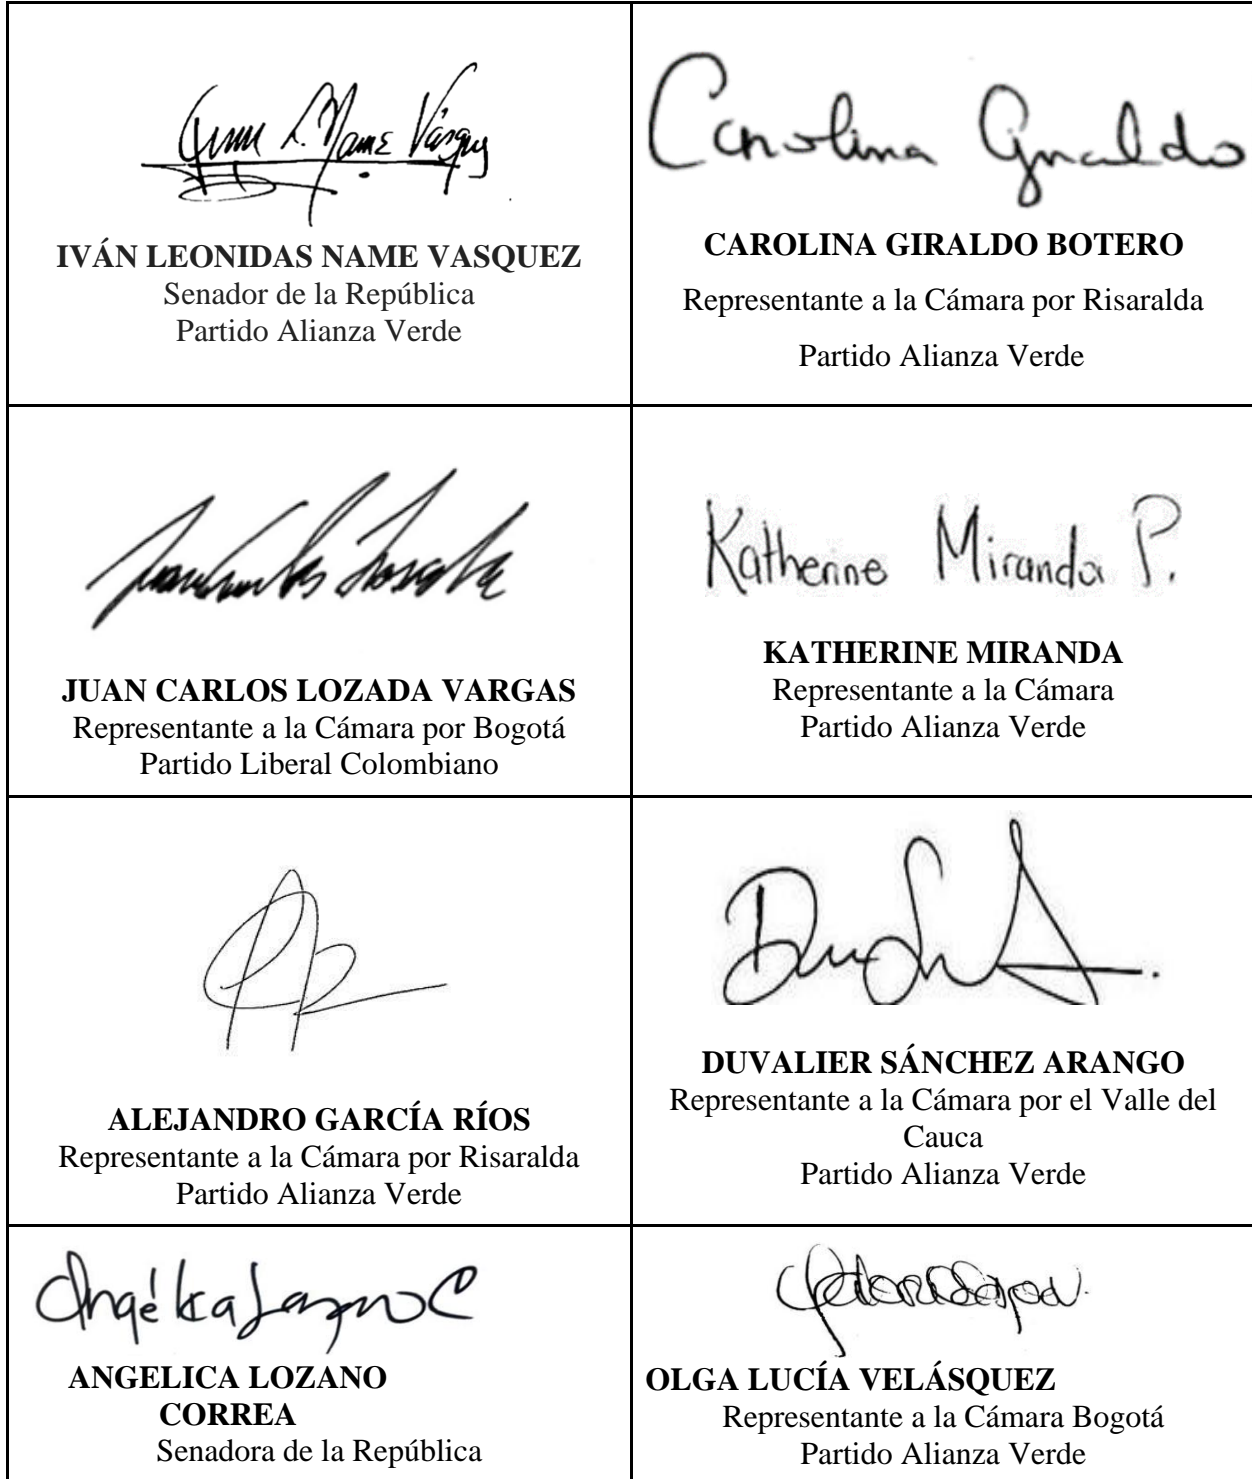 Ivan L. Name Vásquez
IVÁN LEONIDAS NAME VASQUEZ
Senador de la República
Partido Alianza Verde
Carolina Giraldo
CAROLINA GIRALDO BOTERO
Representante a la Cámara por Risaralda
Partido Alianza Verde
Juan Carlos Losada
JUAN CARLOS LOZADA VARGAS
Representante a la Cámara por Bogotá
Partido Liberal Colombiano
Katherine Miranda P.
KATHERINE MIRANDA
Representante a la Cámara
Partido Alianza Verde
ALEJANDRO GARCÍA RÍOS
Representante a la Cámara por Risaralda
Partido Alianza Verde
DUVALIER SÁNCHEZ ARANGO
Representante a la Cámara por el Valle del
Cauca
Partido Alianza Verde
Angélica Lozano C
ANGELICA LOZANO
CORREA
Senadora de la República
OLGA LUCÍA VELÁSQUEZ
Representante a la Cámara Bogotá
Partido Alianza Verde